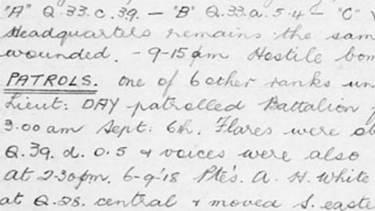 "A" Q.33.c.39. - "B" Q.33.a.5.4 - "C"
Headquarters remains the sam
wounded. - 9-15am Hostile bom
PATROLS. One of 6 other ranks un
Lieut: DAY patrolled Battalion
3.00am Sept: 6th. Flares were ob
Q.39.d.0.5 & voices were also
at 2.30pm. 6-9-18 Pte's. A. H. White
at Q.28. central & moved S. easte